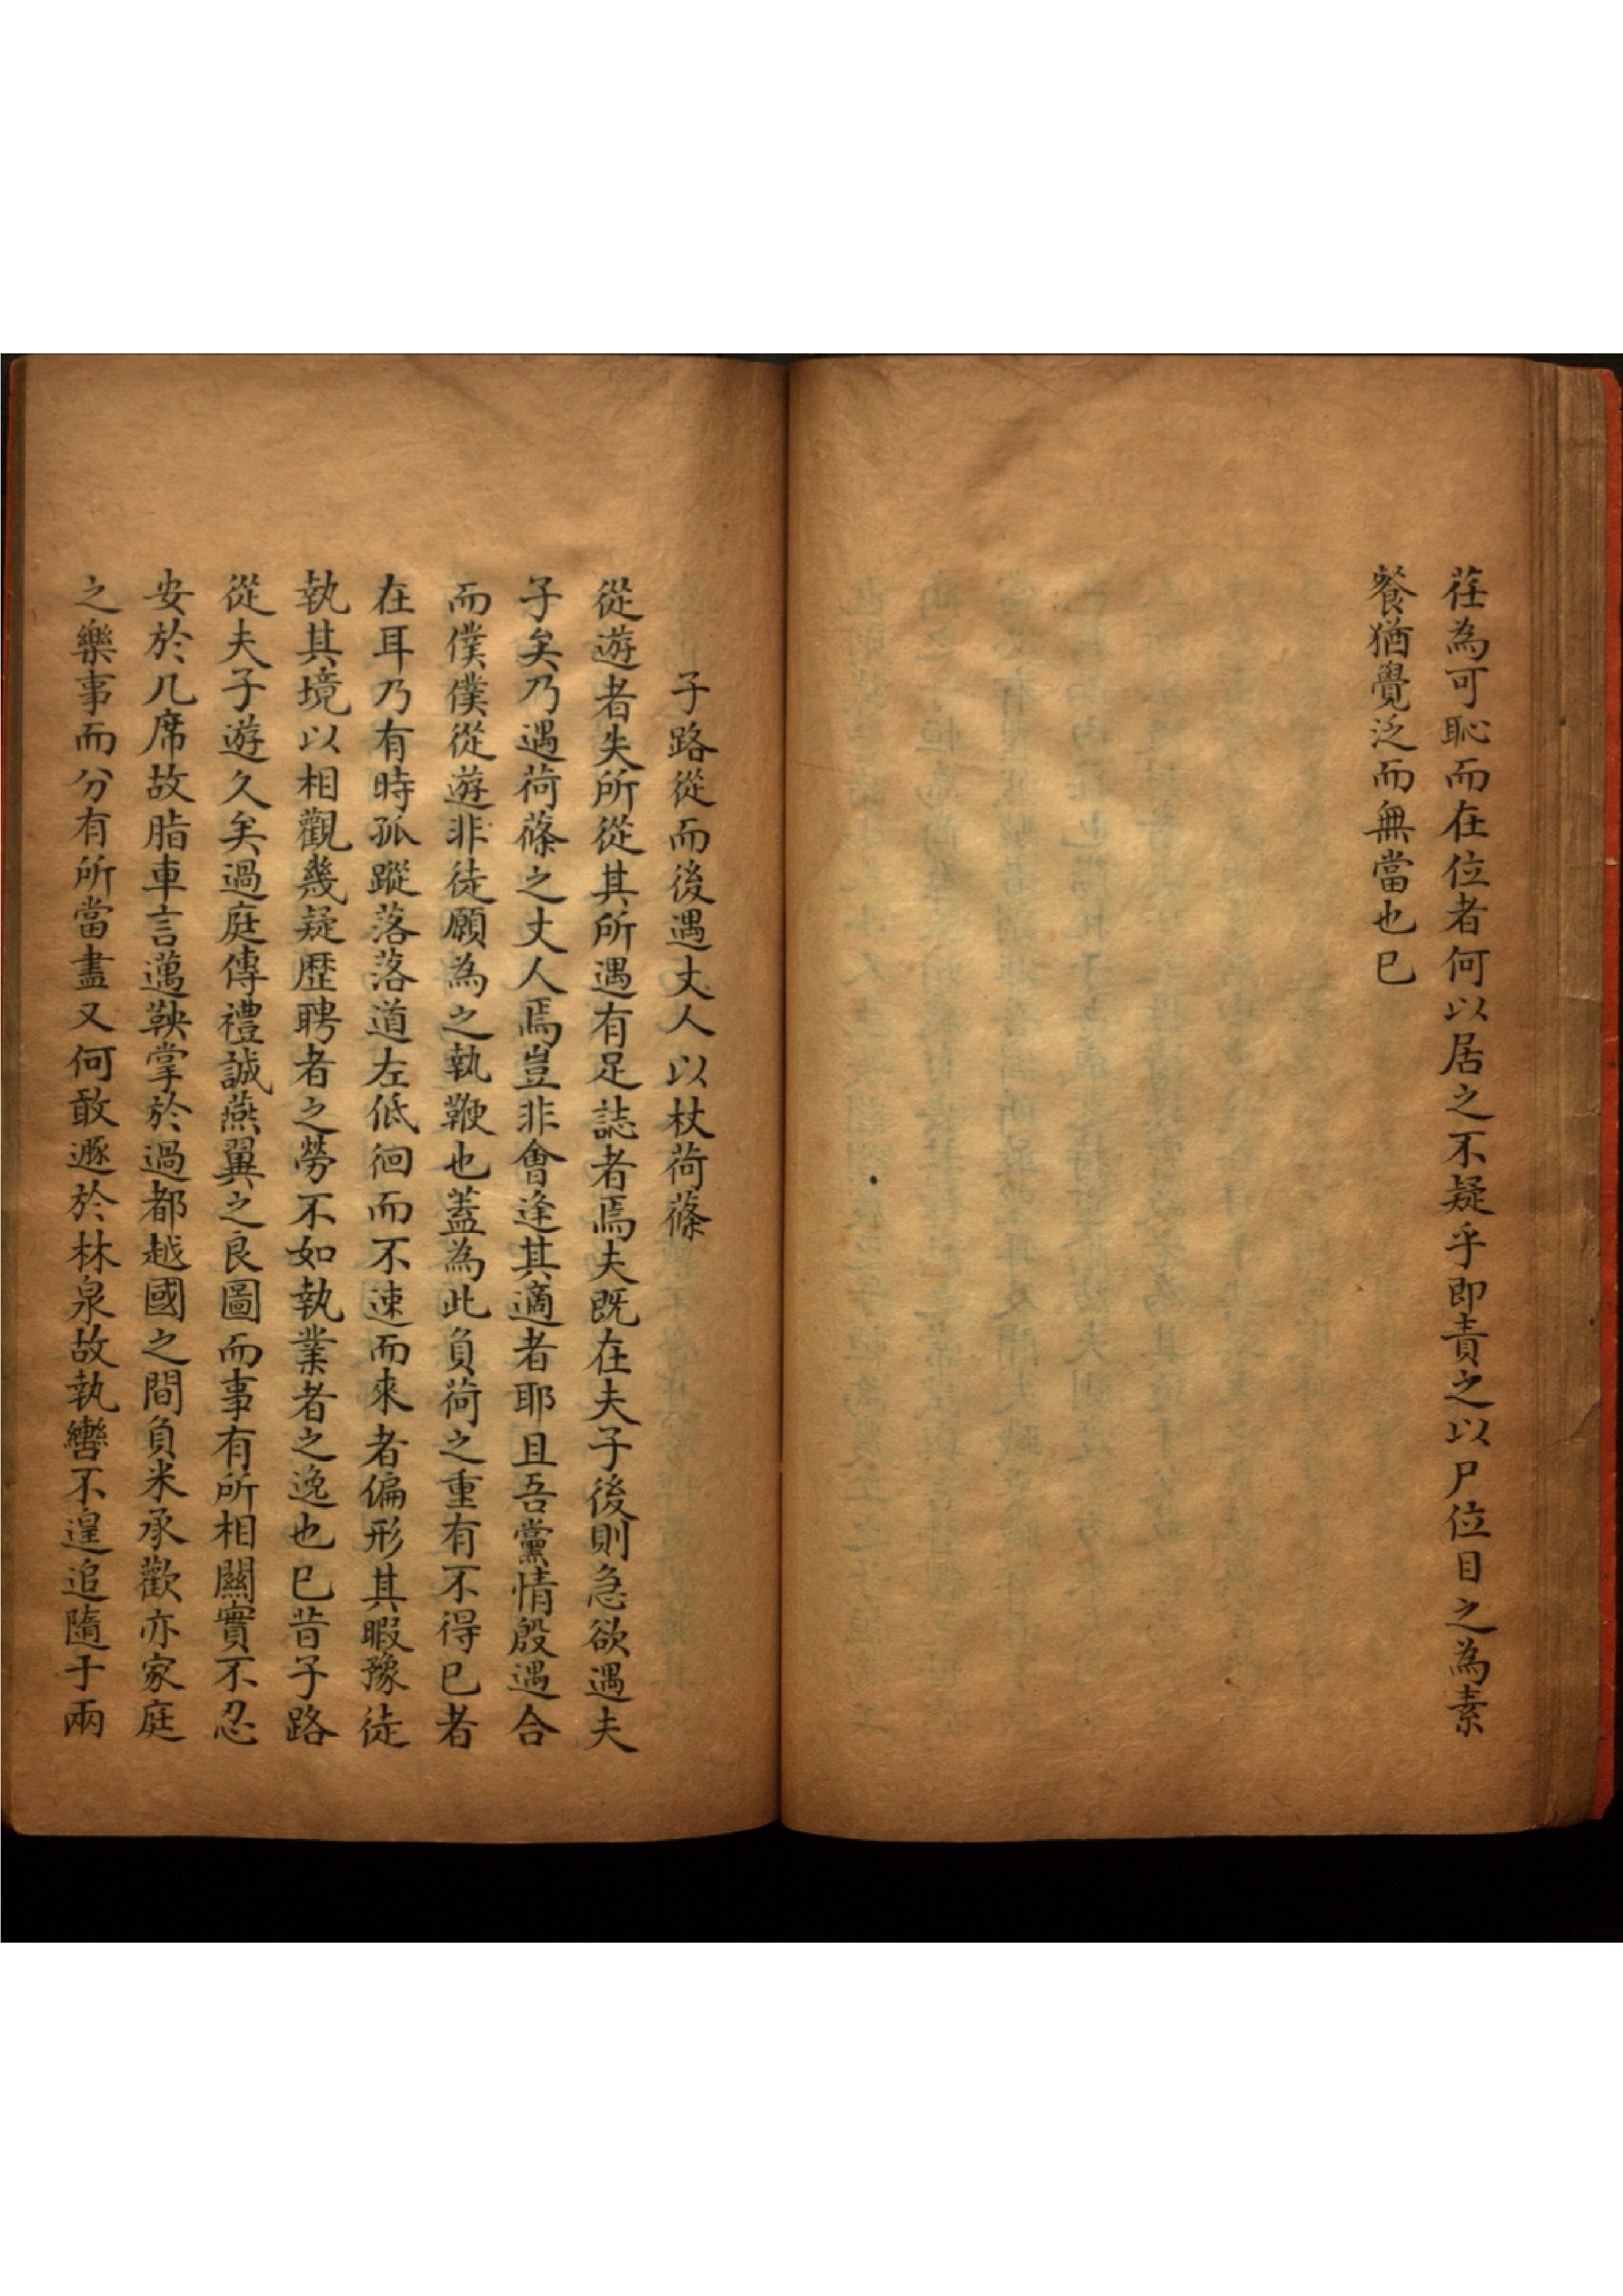 荏為可恥而在位者何以居之不疑乎即責之以尸位目之為素
餐猶覺泛而無當也已
子路從而後遇丈人以杖荷蓧
從遊者失所從其所遇有足誌者焉夫既在夫子後則急欲遇夫
子矣乃遇荷蓧之丈人焉豈非會逢其適者耶且吾黨情殷遇合
而僕僕從遊非徒願為之執鞭也蓋為此負荷之重有不得已者
在耳乃有時孤蹤落落道左低徊而不速而來者偏形其暇豫徒
執其境以相觀幾疑歷聘者之勞不如執業者之逸也已昔子路
從夫子遊久矣過庭傳禮誠燕翼之良圖而事有所相關實不忍
安於几席故脂車言邁鞅掌於過都越國之間負米承歡亦家庭
之樂事而分有所當盡又何敢遯於林泉故執轡不遑追隨于兩